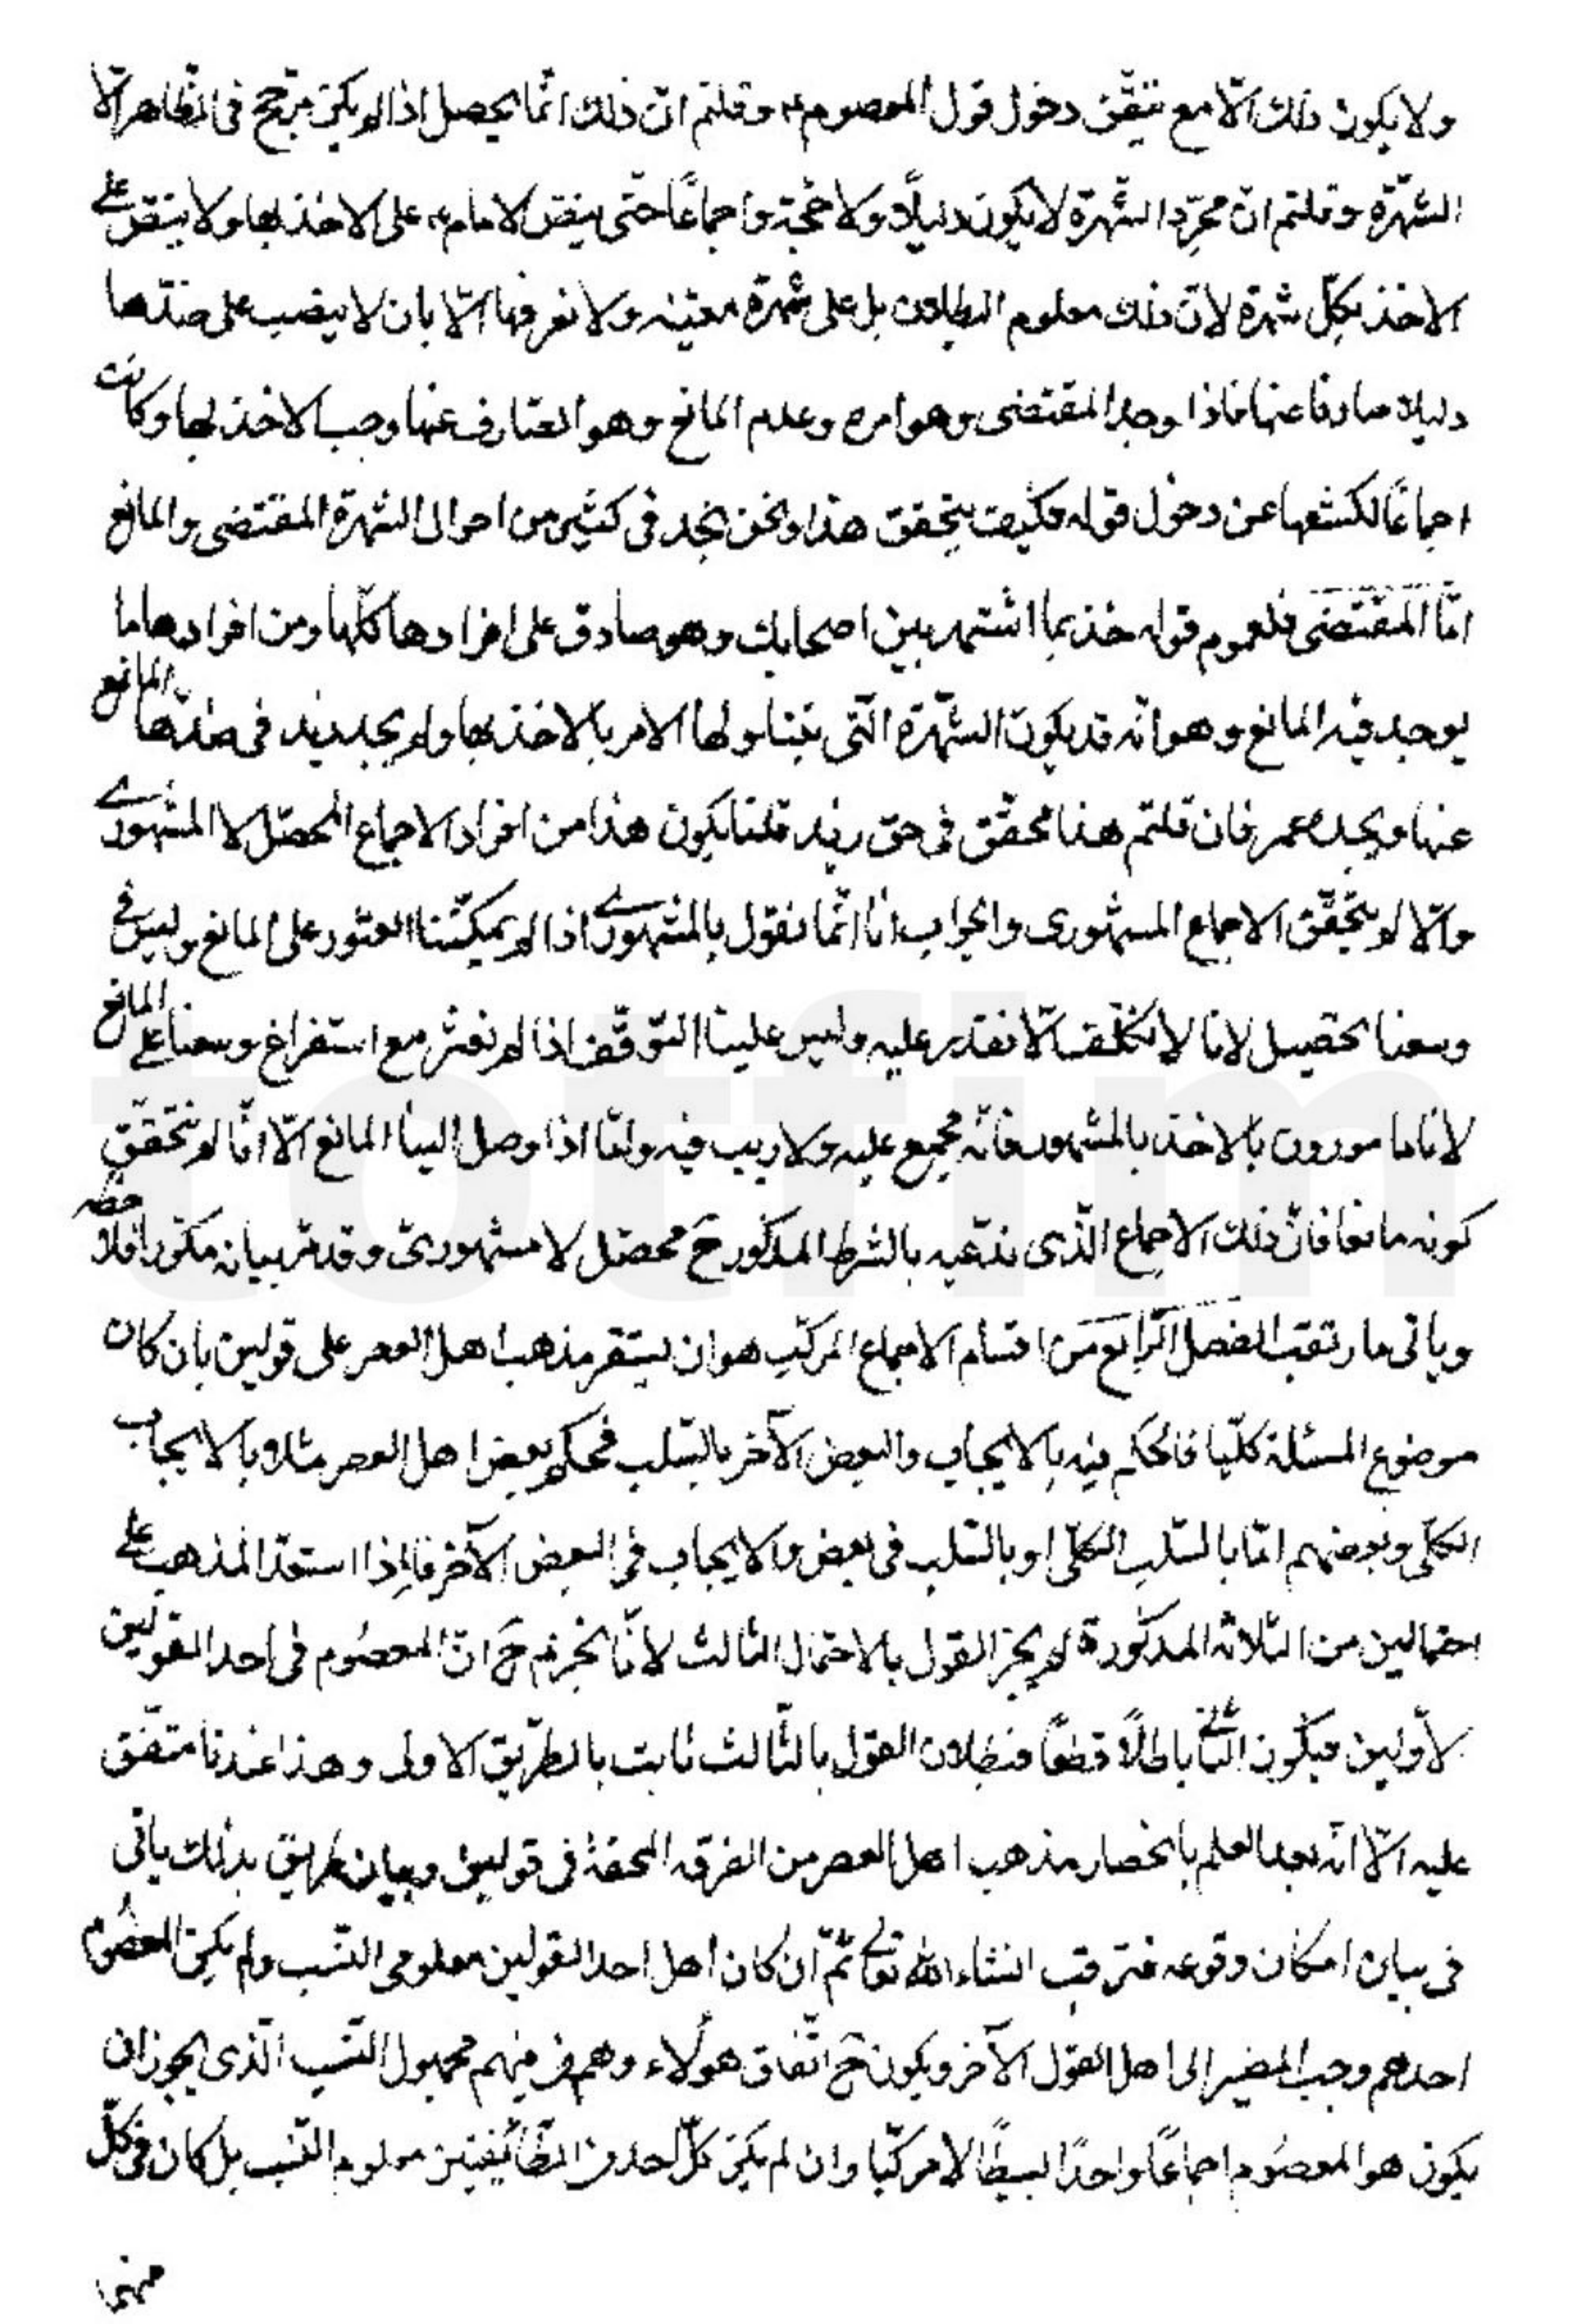 ولا يكون ذلك الّا مع تيقّن دخول قول المعصوم ع وقلتم انّ ذلك انّما يحصل اذا لم يكن مرجّح فى الظّاهر الّا
الشّهرة وقلتم انّ مجرّد الشّهرة لا يكون دليلًا ولا حجّة واجماعًا حتّى ينصّ الامام ع على الاخذ بها ولا ينصّ على
الاخذ بكلّ شهرة لانّ ذلك معلوم البطلان بل على شهرة معيّنه ولا نعرفها الّا بان لا ينصب على ضدّها
دليلا صارفا عنها فاذا وجد المقتضى وهو امره وعدم المانع وهو الصّارف عنها وجب الاخذ بها وكانت
اجماعًا لكشفها عن دخول قوله فكيف يتحقق هذا ونحن نجد فى كثير من احوال الشهرة المقتضى والمانع
امّا المقتضى فلعموم قوله خذ بما اشتهر بين اصحابك وهو صادق على افرادها كلّها ومن افرادها ما
يوجد فيه المانع وهو انّه قد يكون الشّهرة الّتى يتناولها الامر بالاخذ بها ولم يجد زيد فى ضدّها المانع
عنها ويجده عمر فان قلتم هذا محقّق فى حق زيد قلنا يكون هذا من افراد الاجماع المحصّل لا المشهورى
والّا لم يتحقّق الاجماع المشهورى والجواب انا انّما نقول بالمشهورى اذا لم يمكنّنا العثور على المانع وليس فى
وسعنا تحصيل لانا لا نكلّف الّا نقدر عليه وليس علينا التوقّف اذا لم نعثر مع استفراغ وسعنا على المانع
لانا مامورون بالاخذ بالمشهور فانّه مجمع عليه ولا ريب فيه وامّا اذا وصل الينا المانع الّا انّا لم نتحقّق
كونه مانعا فانّ ذلك الاجماع الّذى ندّعيه بالشرط المذكور ح محصّل لا مشهورىّ وقد مرّ بيانه مكرّرا فلاحظه
وياتى ما رتقب الفصل الرّابع من اقسام الاجماع المركّب هو ان يستقر مذهب اهل العصر على قولين بان كان
موضوع المسئلة كلّيا فالحكم فيه بالايجاب والبعض الآخر بالسّلب فحكم بعض اهل العصر مثلا بالايجاب
الكلّى وبعضهم امّا بالسّلب الكلّى او بالسّلب فى بعض والايجاب فى البعض الآخر فاذا استقرّ المذهب على
احتمالين من الثلاثه المذكورة لم يجز القول بالاحتمال الثالث لانّا نجزم ح انّ المعصوم فى احد القولين
الاولين فيكون الثانى باطلًا قطعًا فبطلان القول بالثّالث ثابت بالطّريق الاولى وهذا عندنا متّفق
عليه الّا انّه بعد العلم بانحصار مذهب اهل العصر من الفرقه المحقة فى قولين وبيان طريق بذلك ياتى
فى بيان امكان وقوعه فترقب انشاء الله تعالى ثمّ ان كان اهل احد القولين معلومى النّسب ولم يكن المعصوم
احدهم وجب المصير الى اهل القول الآخر ويكون ح اتّفاق هولاء وهم من فيهم مجهول النّسب الّذى يجوز ان
يكون هو المعصوم اجماعًا واحدًا بسيطًا لا مركّبا وان لم يكن كلّ احد من الطّائفتين معلوم النّسب بل كان فى كلّ
منهما